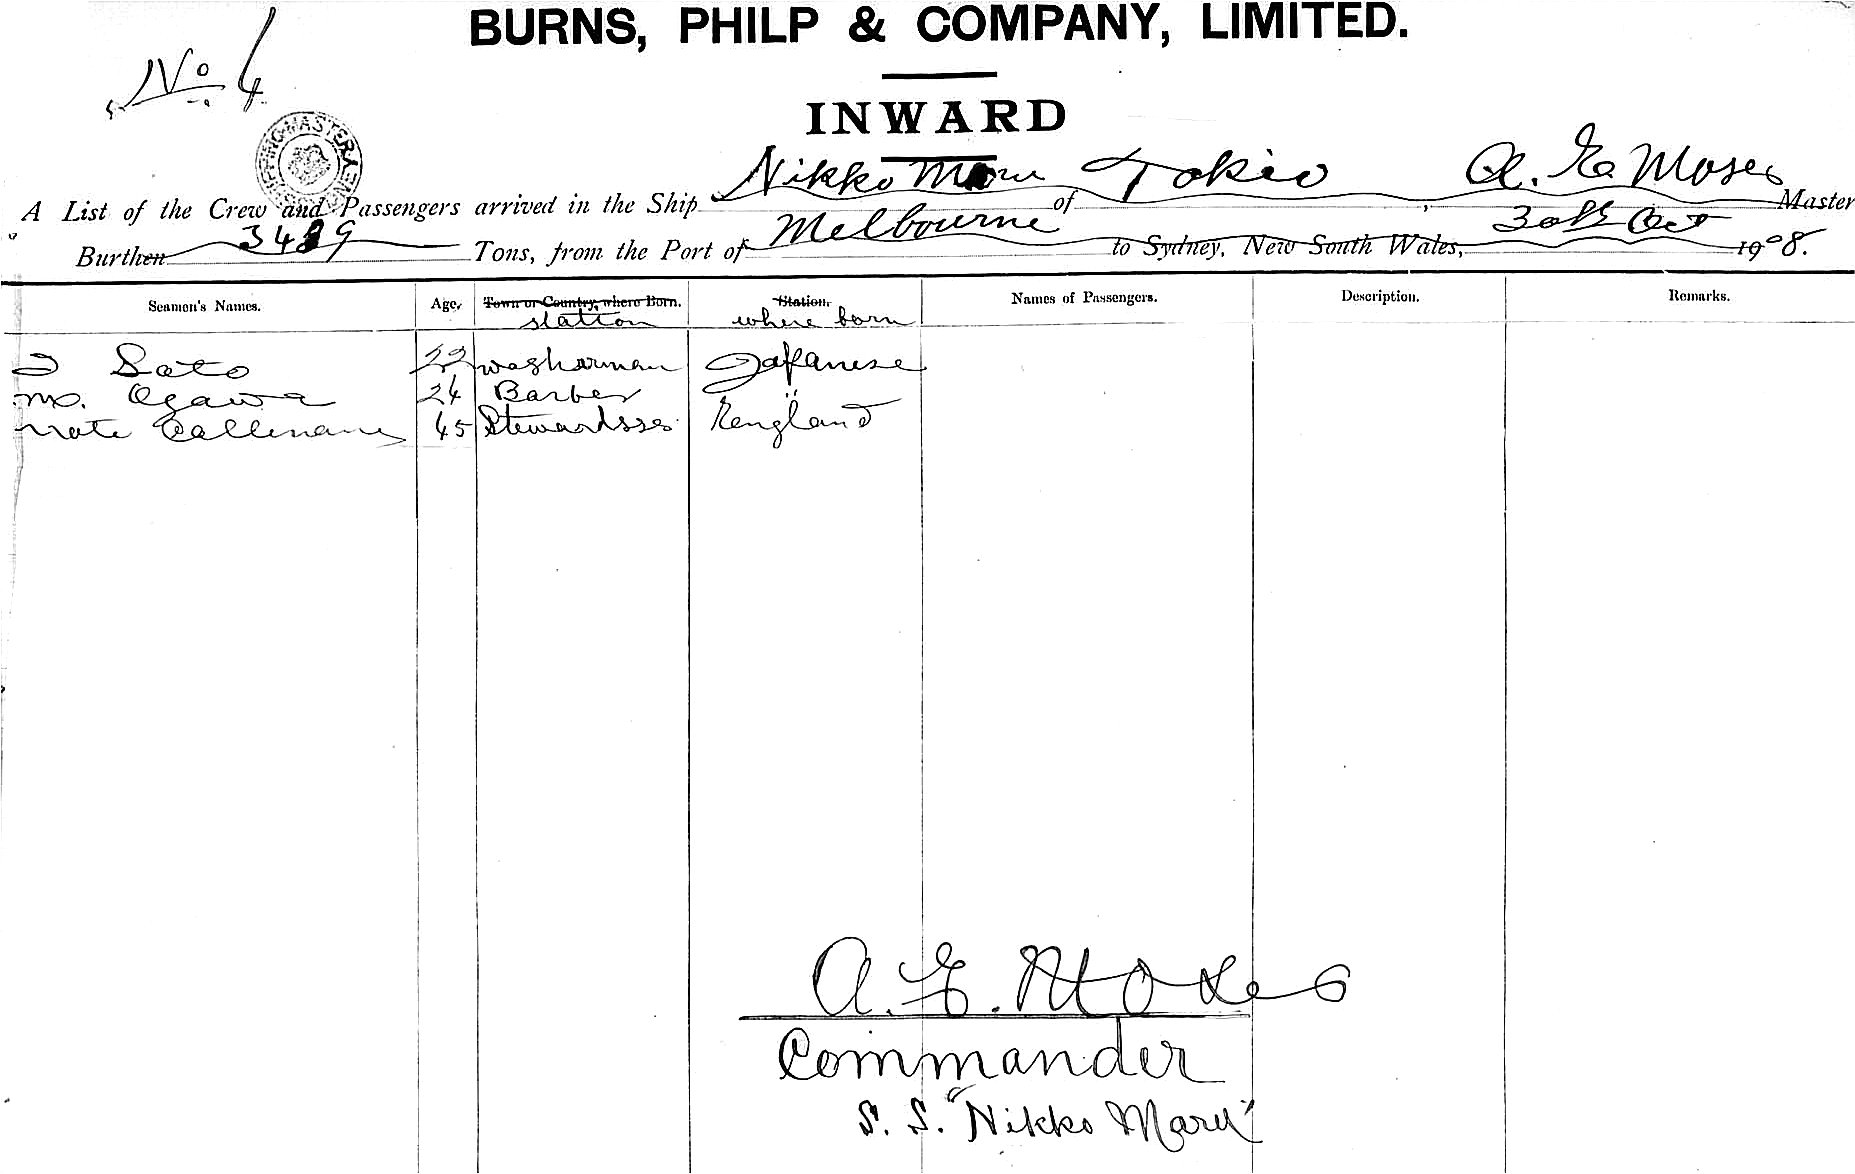 BURNS, PHILP & COMPANY, LIMITED.
No 4
INWARD
SHIPPING MASTER
A List of the Crew and Passengers arrived in the Ship Nikko Maru of Tokio, A. E. Moses Master
Burthen Tons, from the Port of Melbourne to Sydney, New South Wales, 30th Oct 1908.
Seamen's Names. Age. Town or Country, where Born. Station. Names of Passengers. Description. Remarks.
station where born
Sato 22 washerman Japanese
Ogawa 24 Barber "
Callinane 45 Stewardsses England
A. E. Moses
Commander
S. S. "Nikko Maru"